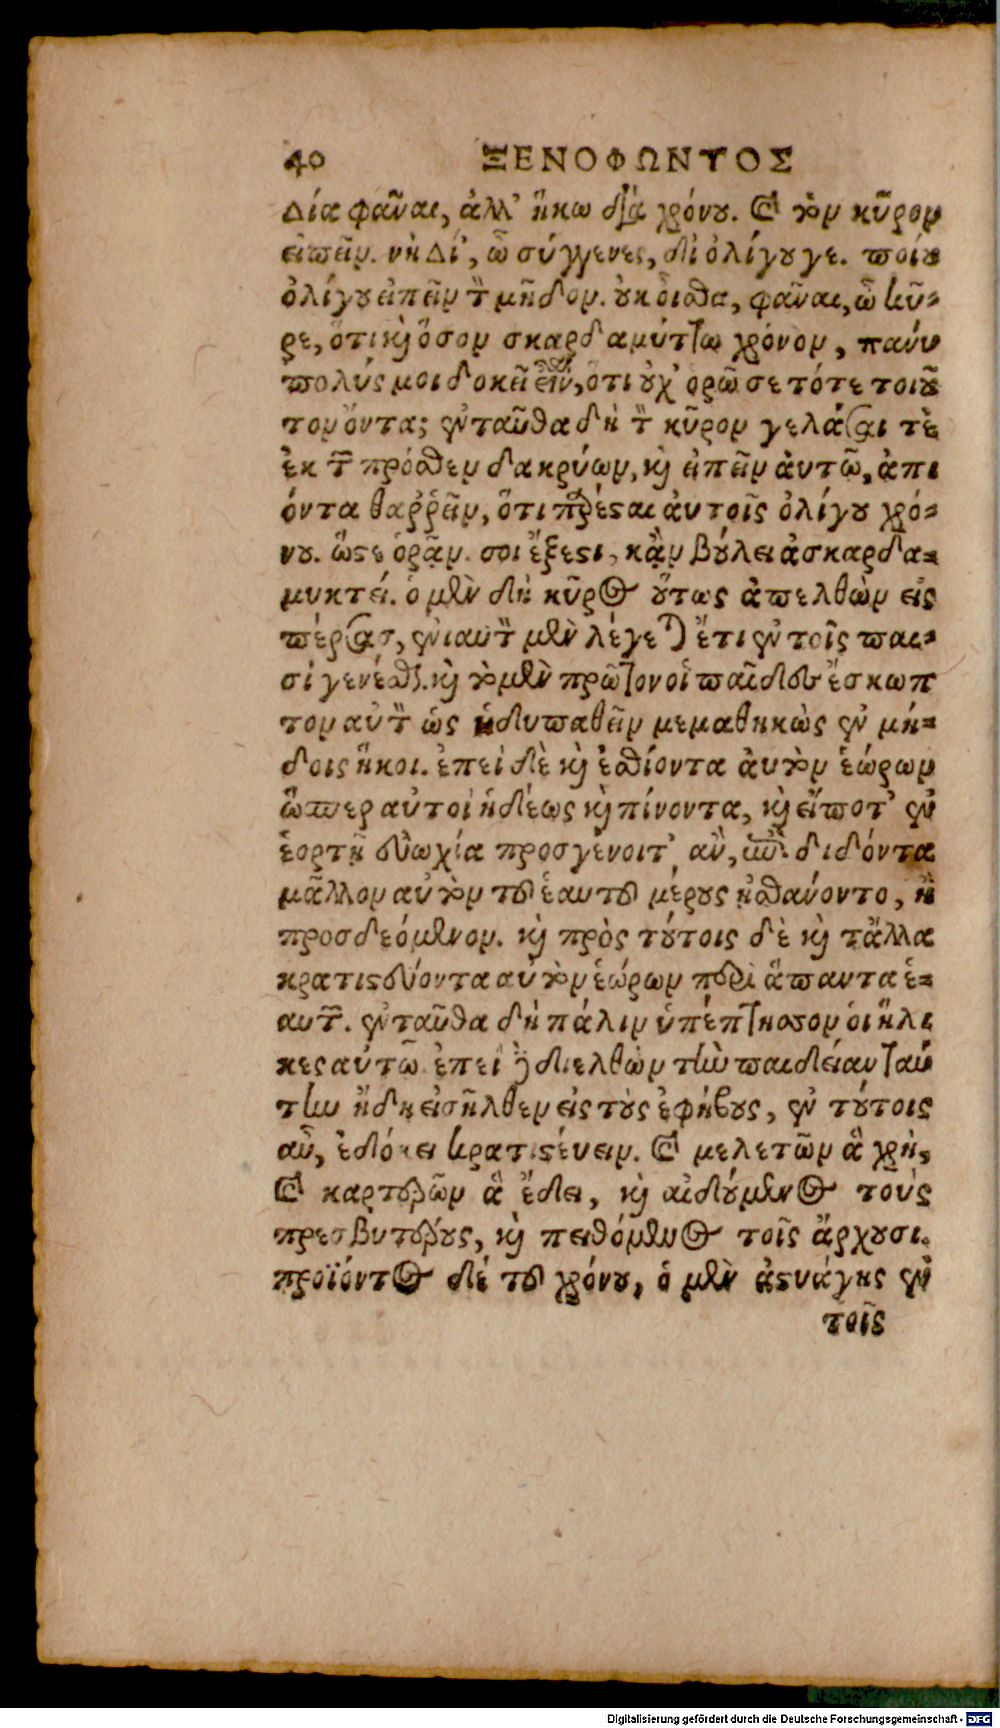 40 ΞΕΝΟΦΩΝΤΟΣ
Δία φᾶναι, ἀλλ' ἥκω διὰ χρόνου. καὶ τὸν κῦρον
εἰπεῖν. νὴ Δί', ὦ σύγγενες, δι' ὀλίγου γε. ποίου
ὀλίγου εἰπεῖν τὸν μῆδον. οὐκ οἶσθα, φᾶναι, ὦ κῦ-
ρε, ὅτι καὶ ὅσον σκαρδαμύττω χρόνον, πάνυ
πολύς μοι δοκεῖ εἶναι, ὅτι οὐχ ὁρῶ σε τότε τοιοῦ
τον ὄντα; ἐνταῦθα δὴ τὸν κῦρον γελάσαι τὲ
ἐκ τῶν πρόσθεν δακρύων, καὶ εἰπεῖν ἀυτῷ, ἀπι
όντα θαῤῥεῖν, ὅτι παρέσται ἀυτοῖς ὀλίγου χρό-
νου. ὥστε ὁρᾷν σοι ἔξεστι, κἂν βούλει ἀσκαρδα-
μυκτεί. ὁ μὲν δὴ κῦρος οὕτως ἀπελθὼν εἰς
πέρσας, ἐνιαυτὸν μὲν λέγεται ἔτι ἐν τοῖς παι-
σί γενέσθαι. καὶ τὸ μὲν πρῶτον οἱ παῖδες ἔσκωπ
τον αὐτὸν ὡς ἡδυπαθεῖν μεμαθηκὼς ἐν μή-
δοις ἥκοι. ἐπεὶ δὲ καὶ ἐσθίοντα ἀυτὸν ἑώρων
ὥσπερ αὐτοὶ ἡδέως καὶ πίνοντα, καὶ εἴ ποτ' ἐν
ἑορτῇ ευωχία προσγένοιτ' αὐ, διδόντα
μᾶλλον αὐτὸν τοῦ ἑαυτοῦ μέρους ᾐσθάνοντο, ἢ
προσδεόμενον. καὶ πρὸς τούτοις δὲ καὶ τἄλλα
κρατιστεύοντα αὐτὸν ἑώρων περὶ ἅπαντα ἑ-
αυτῶν. ἐνταῦθα δὴ πάλιν ὑπέπτησσον οἱ ἥλι
κες αὐτῷ. ἐπεὶ δὲ διελθὼν τὴν παιδείαν ταύ
την ἤδη εἰσῆλθεν εἰς τοὺς ἐφήβους, ἐν τούτοις
αὖ, ἐδόκει κρατιστεύειν. καὶ μελετῶν ἃ χρὴ,
καὶ καρτερῶν ἃ ἔδει, καὶ αἰδούμενος τοὺς
πρεσβυτέρους, καὶ πειθόμενος τοῖς ἄρχουσι.
προϊόντος δὲ τοῦ χρόνου, ὁ μὲν ἀστυάγης ἐν
τοῖς
Digitalisierung gefördert durch die Deutsche Forschungsgemeinschaft - DFG